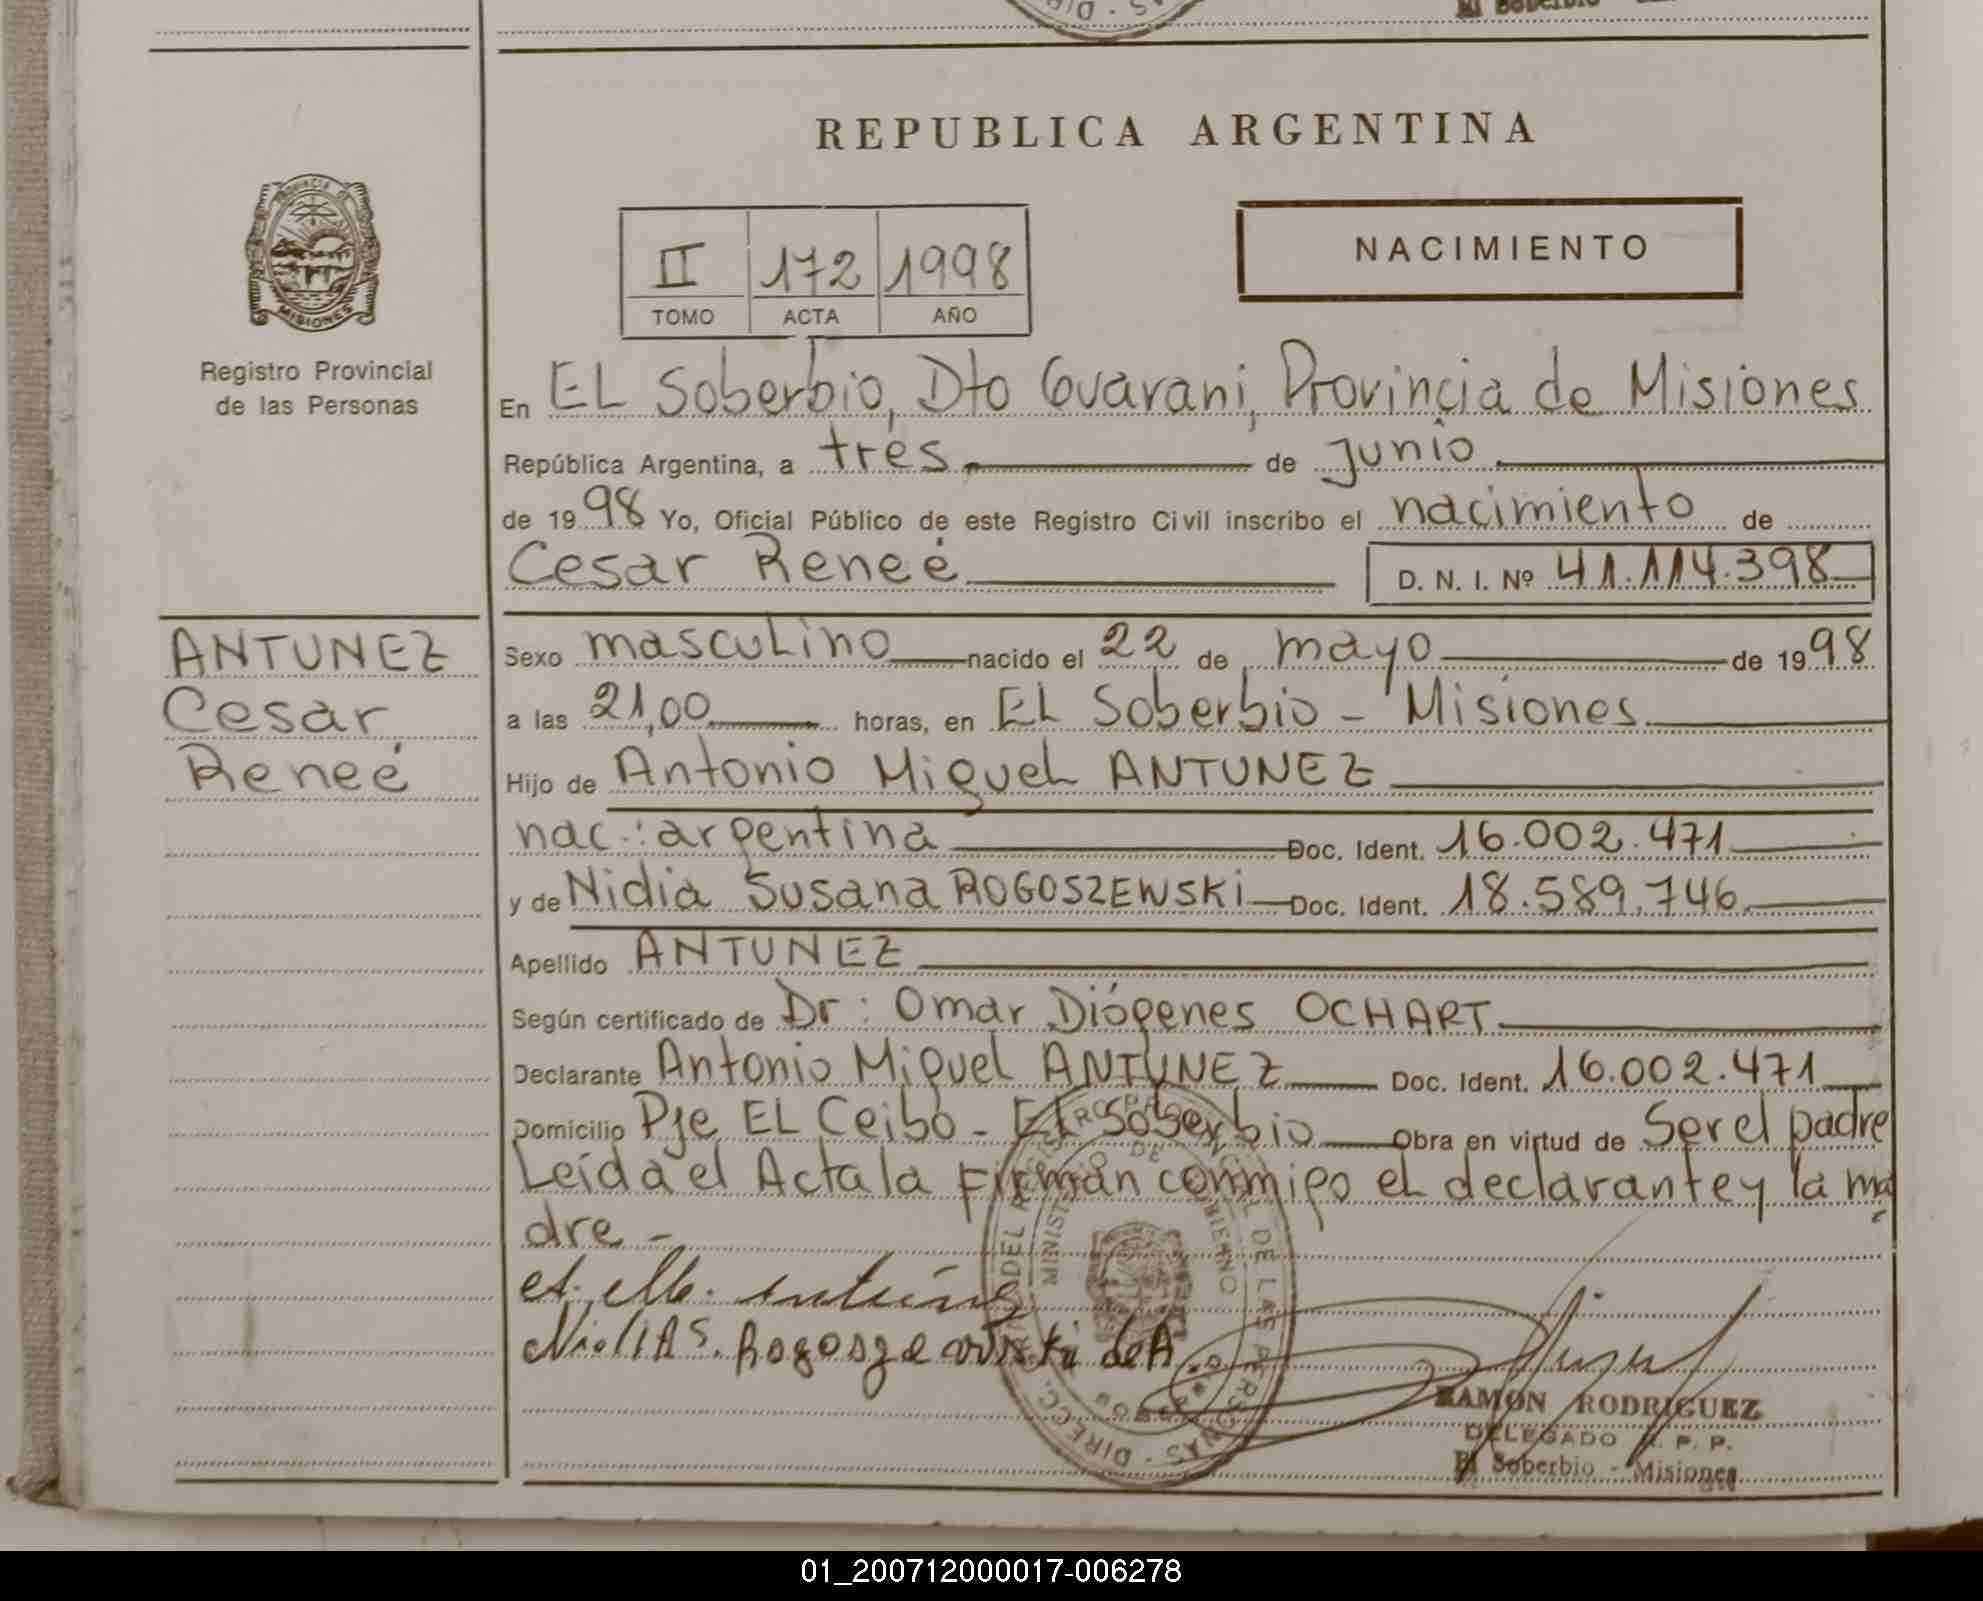 El Soberbio
REPUBLICA ARGENTINA
PROVINCIA DE
MISIONES
Registro Provincial
de las Personas
NACIMIENTO
II 172 1998
TOMO ACTA AÑO
En EL Soberbio, Dto Guarani, Provincia de Misiones
República Argentina, a tres de junio
de 1998 Yo, Oficial Público de este Registro Civil inscribo el nacimiento de
Cesar Reneé D. N. I. Nº 41.114.398
ANTUNEZ
Cesar
Reneé
Sexo masculino nacido el 22 de mayo de 1998
a las 21,00 horas, en EL Soberbio - Misiones
Hijo de Antonio Miguel ANTUNEZ
nac.: argentina Doc. Ident. 16.002.471
y de Nidia Susana ROGOSZEWSKi Doc. Ident. 18.589.746
Apellido ANTUNEZ
Según certificado de Dr: Omar Diógenes OCHART
Declarante Antonio Miguel ANTUNEZ Doc. Ident. 16.002.471
Domicilio Pje EL Ceibo - El Soberbio Obra en virtud de Ser el padre
Leída el Acta la Firman conmigo el declarante y la ma
dre -
A. M. Antúnez
Nidia S. Rogoszewski de A.
RAMON RODRIGUEZ
DELEGADO R. P. P.
El Soberbio - Misiones
01_200712000017-006278